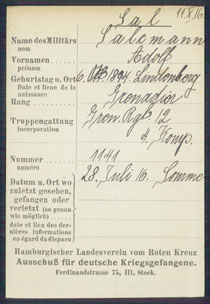 11.8.16.
Sal
Name des Militärs Salzmann
nom
Vornamen Adolf
prénom
Geburtstag u. Ort 6. 1894 Lindenberg
Date et lieu de la
naissance
Rang Grenadier
Truppengattung Gren. Rgt. 12
Incorporation 4. Komp.
Nummer 1141
numéro
Datum u. Ort wo 28. Juli 16. Somme
zuletzt gesehen,
gefangen oder
verletzt (so genau
wie möglich)
date et lieu des der-
nières informations
en égard du disparu
Hamburgischer Landesverein vom Roten Kreuz
Ausschuß für deutsche Kriegsgefangene.
Ferdinandstrasse 75, III. Stock.